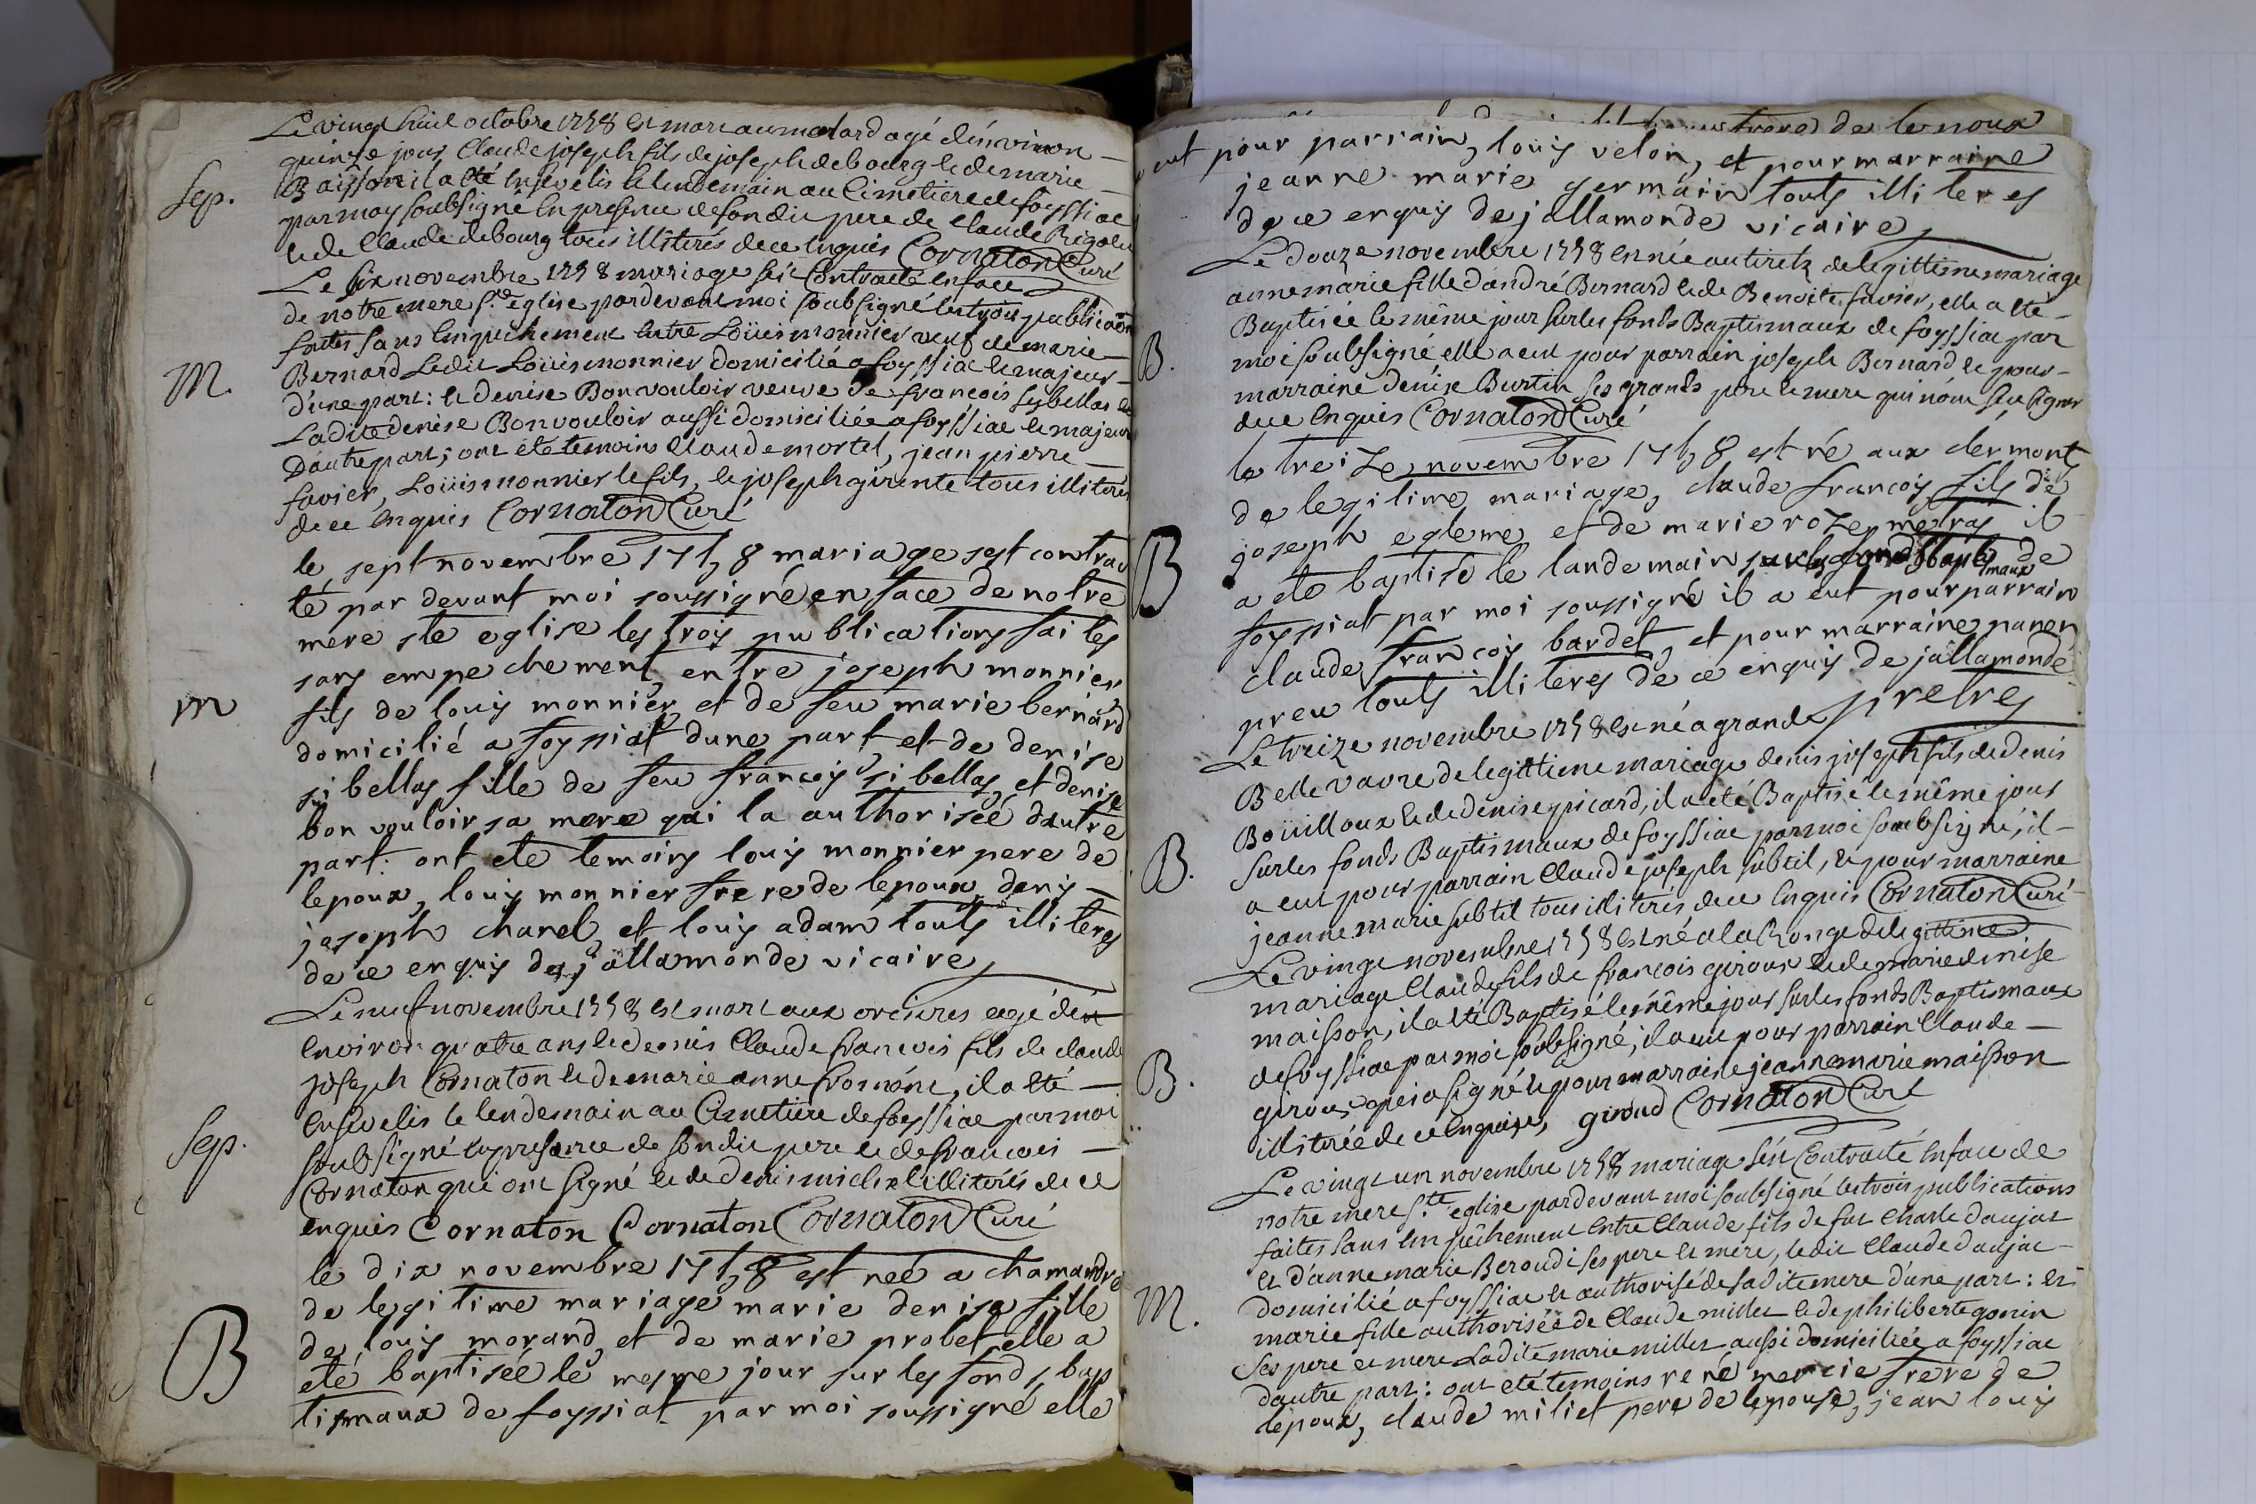 Le vingt huit octobre 1758 est mort au molard agé d'environ
quinze jours Claude joseph fils de joseph debourg et de marie
Sep.
Baisson il a été ensevelis le lendemain au Cimetiere de foyssiac
par moy soubsigné en presence de son dit pere de Claude Rigolet
et de Claude debourg tous illiterés de ce enquis Cornaton Curé
Le six novembre 1758 mariage s'est Contracté en face
de notre mere ste eglise pardevant moi soubsigné les trois publications
faites sans empechement entre Loüis monnier veuf de marie
M.
Bernard Ledit Loüis monnier domicilié a foyssiac et majeur
d'une part : et denise Bonvouloir veuve de francois sybellas et
Ladite denise Bonvouloir aussi domiciliée a foyssiac et majeure
D'autre part ; ont été temoins Claude mortel, jean pierre
favier, Loüis monnier le fils, et joseph girente tous illiterés
de ce enquis Cornaton Curé
le sept novembre 1758 mariage sest contrac
té par devant moi soussigné en face de notre
mere ste eglise les trois publications faites
sans empechement entre joseph monnier
m
fils de louis monnier et de feu marie bernard
domicilié a foyssiat dune part et de denise
si bellas fille de feu francois si bellas et denise
bon vouloir sa mere qui la authorisée dautre
part. ont ete temoins louis monnier pere de
lepoux, louis monnier frere de lepoux denis
joseph charel et louis adam touts illiteres
de ce enquis de jallamonde vicaire
Le neuf novembre 1758 est mort aux orcières agé d'en
environ quatre ans et demis Claude francois fils de claude
joseph Cornaton et de marie anne fromont, il a été
ensevelis le lendemain au Cimetiere de foyssiac par moi
Sep.
soubsigné en presence de son dit pere et de francois
Cornaton qui ont signé et de denis michel illiterés de ce
enquis Cornaton Cornaton Cornaton Curé
le dix novembre 1758 est neé a chamandre
de legitime mariage marie denise fille
de louis morand et de marie probet elle a
B
eté baptisée le mesme jour sur les fonds bap
tismaux de foyssiat par moi soussigné elle
frere de lepoux
eut pour parrain, louis velon, et pour marraine
jeanne marie germain touts illiteres
de ce enquis de jallamonde vicaire
Le douze novembre 1758 est née au tiretz de legittime mariage
anne marie fille d'andré Bernard et de Benoite favier, elle a été
Baptisée le même jour sur les fonds Baptismaux de foyssiac par
B.
moi soubsigné elle a eut pour parrain joseph Bernard et pour
marraine denise Burtin ses grands pere et mere qui n'ont sçu signer
de ce enquis Cornaton Curé
le treize novembre 1758 est né aux clermonts
de legitime mariage, claude francois fils de
joseph egleme et de marie roze metras il
B
a ete baptisé le landemain sur les fonds baptismaux de
foyssiat par moi soussigné il a eut pour parrain
claude francois bardet, et pour marraine
preu touts illiteres de ce enquis de jallamonde
pretres
Le treize novembre 1758 est né a grande
Belle vavre de legittime mariage denis joseph fils de denis
Boüilloux et de denise picard, il a été Baptisé le même jour
B.
sur les fonds Baptismaux de foyssiac par moi soubsigné, il
a eut pour parrain Claude joseph subtil, et pour marraine
jeanne marie subtil tous illiterés de ce enquis Cornaton Curé
Le vingt novembre 1758 est né a la Ronge de legittime
mariage Claude fils de francois giroux et de marie denise
maisson, il a été Baptisé le même jour sur les fonds Baptismaux
B.
de foyssiac par moi soubsigné, il a eut pour parrain Claude
giroux qui a signé et pour marraine jeanne marie maisson
illiterée de ce enquise, giroud Cornaton Curé
Le vingt un novembre 1758 mariage s'est Contracté en face de
notre mere ste eglise pardevant moi soubsigné les trois publications
faites sans empêchement entre Claude fils de fut Charle daujat
et d'anne marie Beroud ses pere et mere, ledit Claude daujat
domicilié a foyssiac et authorisé de sadite mere d'une part : et
M.
marie fille authorisée de Claude millet et de philiberte gonin
ses pere et mere Ladite marie millet aussi domiciliée a foyssiac
dautre part : ont été temoins rené mercie frere de
lepoux, claude miliet pere de lepouse, jean louis